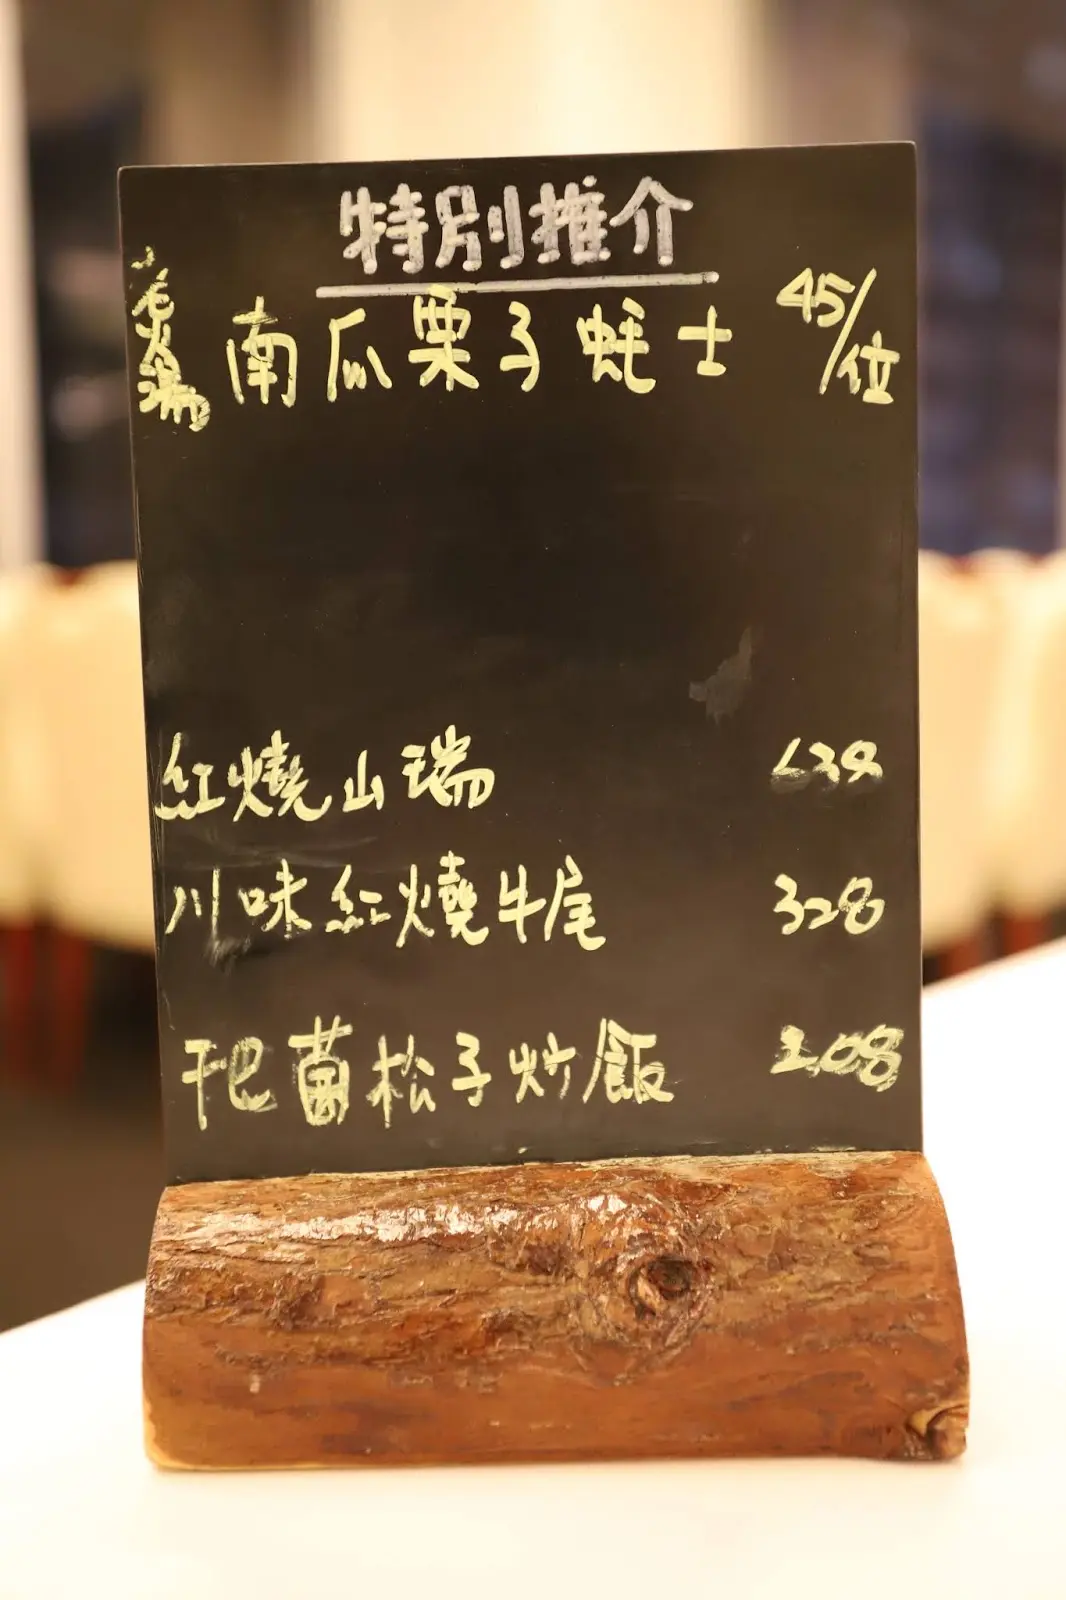 特別推介
南瓜栗子蚝士 45/位
紅燒山瑞 638
川味紅燒牛尾 328
干巴菌松子炒飯 208